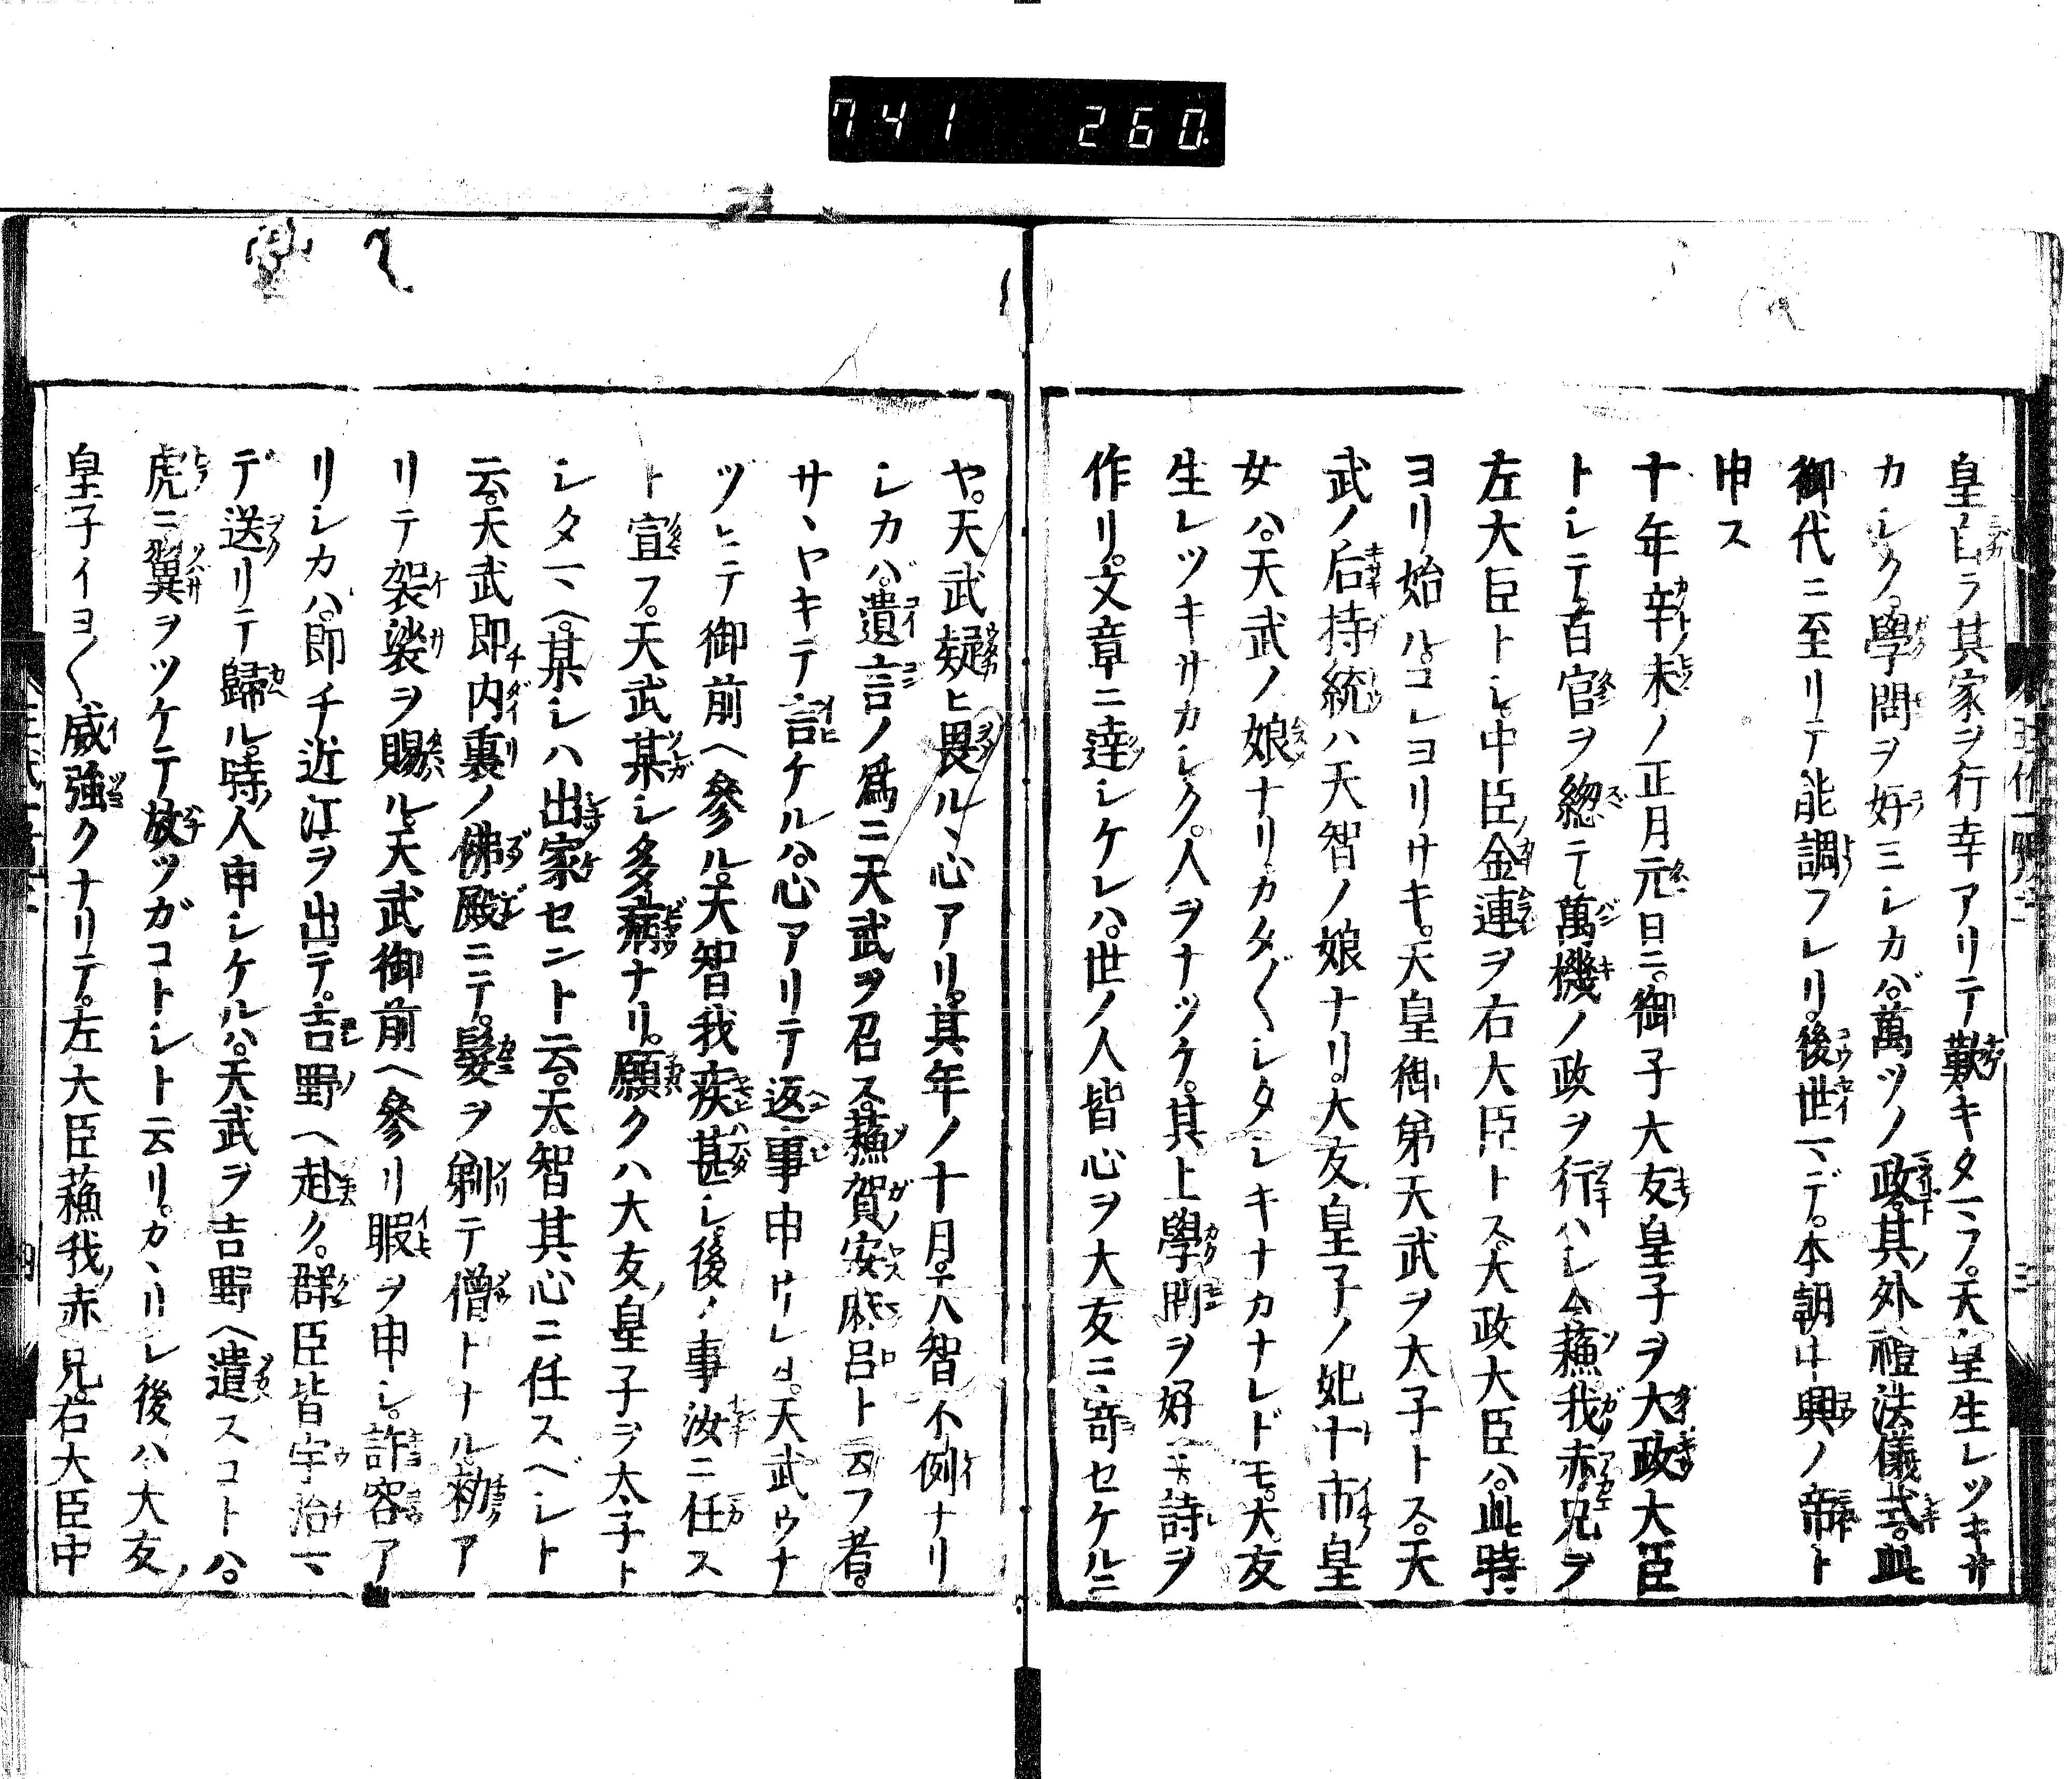 741 260
皇自ラ其家ヲ行幸アリテ歎キタマフ。天皇生レツキサ
カシク。學問ヲ好ミシカバ。萬ツノ政。其外禮法儀式。此
御代ニ至リテ能調フレリ。後世マデ。本朝中興ノ帝ト
申ス
十年辛未ノ正月元日ニ。御子大友皇子ヲ大政大臣
トシテ百官ヲ總テ萬機ノ政ヲ行ハシム。蘓我赤兄ヲ
左大臣トシ。中臣金連ヲ右大臣トス。大政大臣ハ。此時
ヨリ始ル。コレヨリサキ。天皇御弟天武ヲ大子トス。天
武ノ后持統ハ天智ノ娘ナリ。大友皇子ノ妃十市皇
女ハ。天武ノ娘ナリカタ〴〵シタシキナカナレドモ。大友
生レツキサカシク。人ヲナツケ。其上學問ヲ好ミ詩ヲ
作リ。文章ニ達シケレハ。世ノ人皆心ヲ大友ニ寄セケルニ
ヤ。天武疑ヒ畏ル、心アリ。其年ノ十月。天智不例ナリ
シカバ。遺言ノ爲ニ天武ヲ召ス。蘓賀安麻呂ト云フ者。
サヽヤキテ言ケルハ。心アリテ返事申サレヨ。天武ウナ
ヅヒテ御前ヘ參ル。天智我疾甚シ。後ノ事汝ニ任ス
ト宣フ。天武某シ多病ナリ。願クハ大友皇子ヲ太子ト
シタマヘ。某シハ出家セント云。天智其心ニ任スベシト
云。天武即内裏ノ佛殿ニテ。髮ヲ剃テ僧トナル。勅ア
リテ袈裟ヲ賜ル。天武御前ヘ參リ暇ヲ申シ。許容ア
リシカハ。即チ近江ヲ出テ。吉野ヘ赴ク。群臣皆宇治マ
デ送リテ歸ル。時ノ人申シケルハ。天武ヲ吉野ヘ遣スコトハ。
虎ニ翼ヲツケテ放ツガコトシト云リ。カヽリシ後ハ大友ノ
皇子イヨ〳〵威強クナリテ。左大臣蘓我ノ赤兄。右大臣中